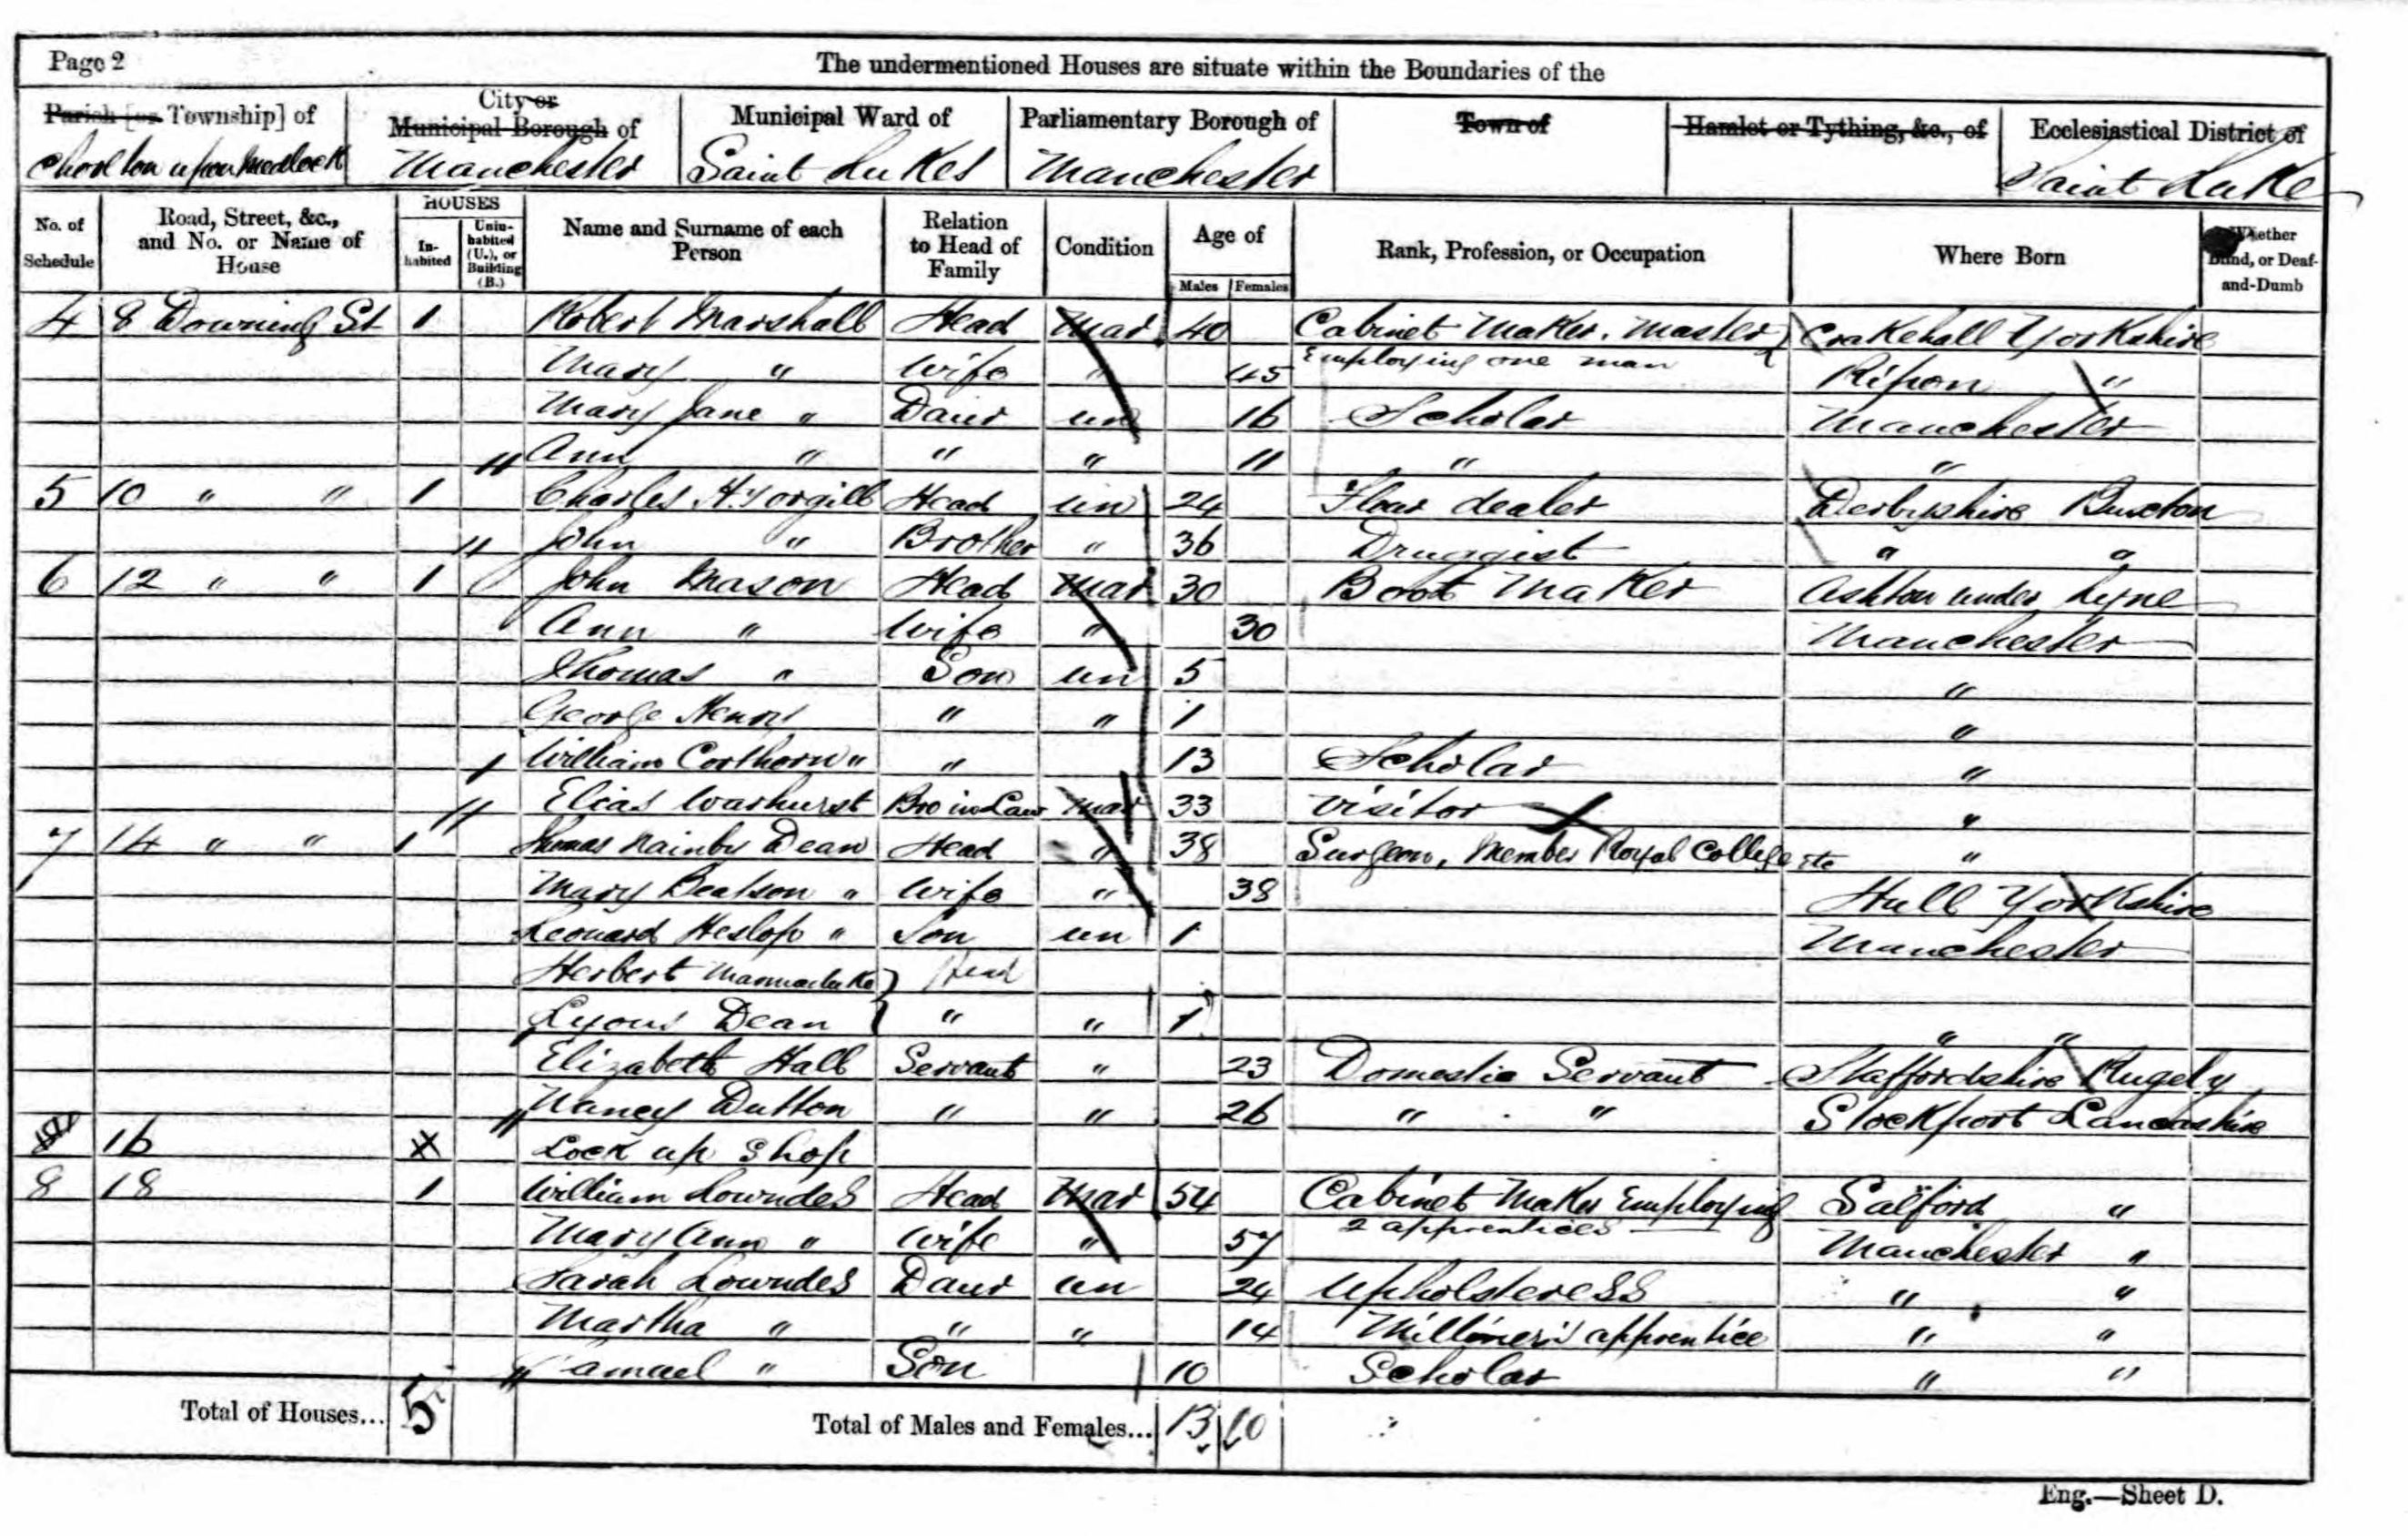 Page 2
The undermentioned Houses are situate within the Boundaries of the
Parish [or Township] of
City or Municipal Borough of
Municipal Ward of
Parliamentary Borough of
Town of
Hamlet or Tything, &c., of
Ecclesiastical District of
Chorlton upon Medlock Manchester Saint Lukes Manchester Saint Luke
No. of Schedule
Road, Street, &c., and No. or Name of House
HOUSES
Inhabited
Uninhabited (U.), or Building (B.)
Name and Surname of each Person
Relation to Head of Family
Condition
Age of
Males Females
Rank, Profession, or Occupation
Where Born
Whether Blind, or Deaf-and-Dumb
4 8 Downing St 1 Robert Marshall Head Mar 40 Cabinet Maker. Master Crakehall Yorkshire
Mary " Wife " 45 Employing one man Ripon "
Mary Jane " Daur un 16 Scholar Manchester
Ann " " " 11 " "
5 10 " " 1 Charles H. Head un 24 Flour dealer Derbyshire Buxton
John " Brother " 36 Druggist " "
6 12 " " 1 John Mason Head Mar 30 Boot Maker Ashton under Lyne
Ann " Wife " 30 Manchester
Thomas " Son un 5 "
George Henry " " 1 "
William " " 13 Scholar "
Elias Warhurst Bro in Law Mar 33 Visitor "
7 14 " " 1 Thomas Dean Head " 38 Surgeon, Member Royal College etc "
Mary Beatson " Wife " 38 Hull Yorkshire
Leonard Heslop " Son un 1 Manchester
Herbert Marmaduke
Lyons Dean " " 1 " "
Elizabeth Hall Servant " 23 Domestic Servant Staffordshire Rugely
Nancy Dutton " " 26 " " Stockport Lancashire
16 Lock up Shop
8 18 1 William Lowndes Head Mar 54 Cabinet Maker Employing Salford "
Mary Ann " Wife " 57 2 apprentices Manchester "
Sarah Lowndes Daur un 24 Upholsteress " "
Martha " " " 14 Milliner's apprentice " "
Samuel " Son 10 Scholar " "
Total of Houses... 5
Total of Males and Females... 13 10
Eng.—Sheet D.